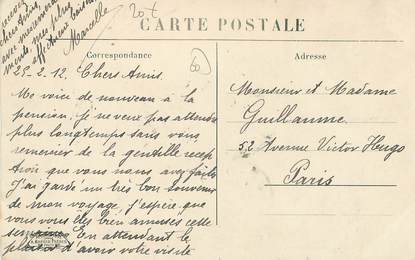 recevez
chers Amis,
avec mes remerciements
mes plus
affectueux baisers
Marcelle
20 f
CARTE POSTALE
Correspondance
Adresse
60
25-2-12. Chers Amis.
Me voici de nouveau à la
pension, je ne veux pas attendre
plus longtemps sans vous
remercier de la gentille récep
tion que vous nous avez faite
J'ai gardé un très bon souvenir
de mon voyage, j'espère que
vous vous êtes bien amusés cette
semaine. En attendant le
plaisir d'avoir votre visite
Monsieur et Madame
Guillaume
52 Avenue Victor Hugo
Paris